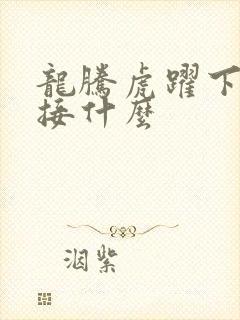 龍騰虎躍下
接什麼
洇紫